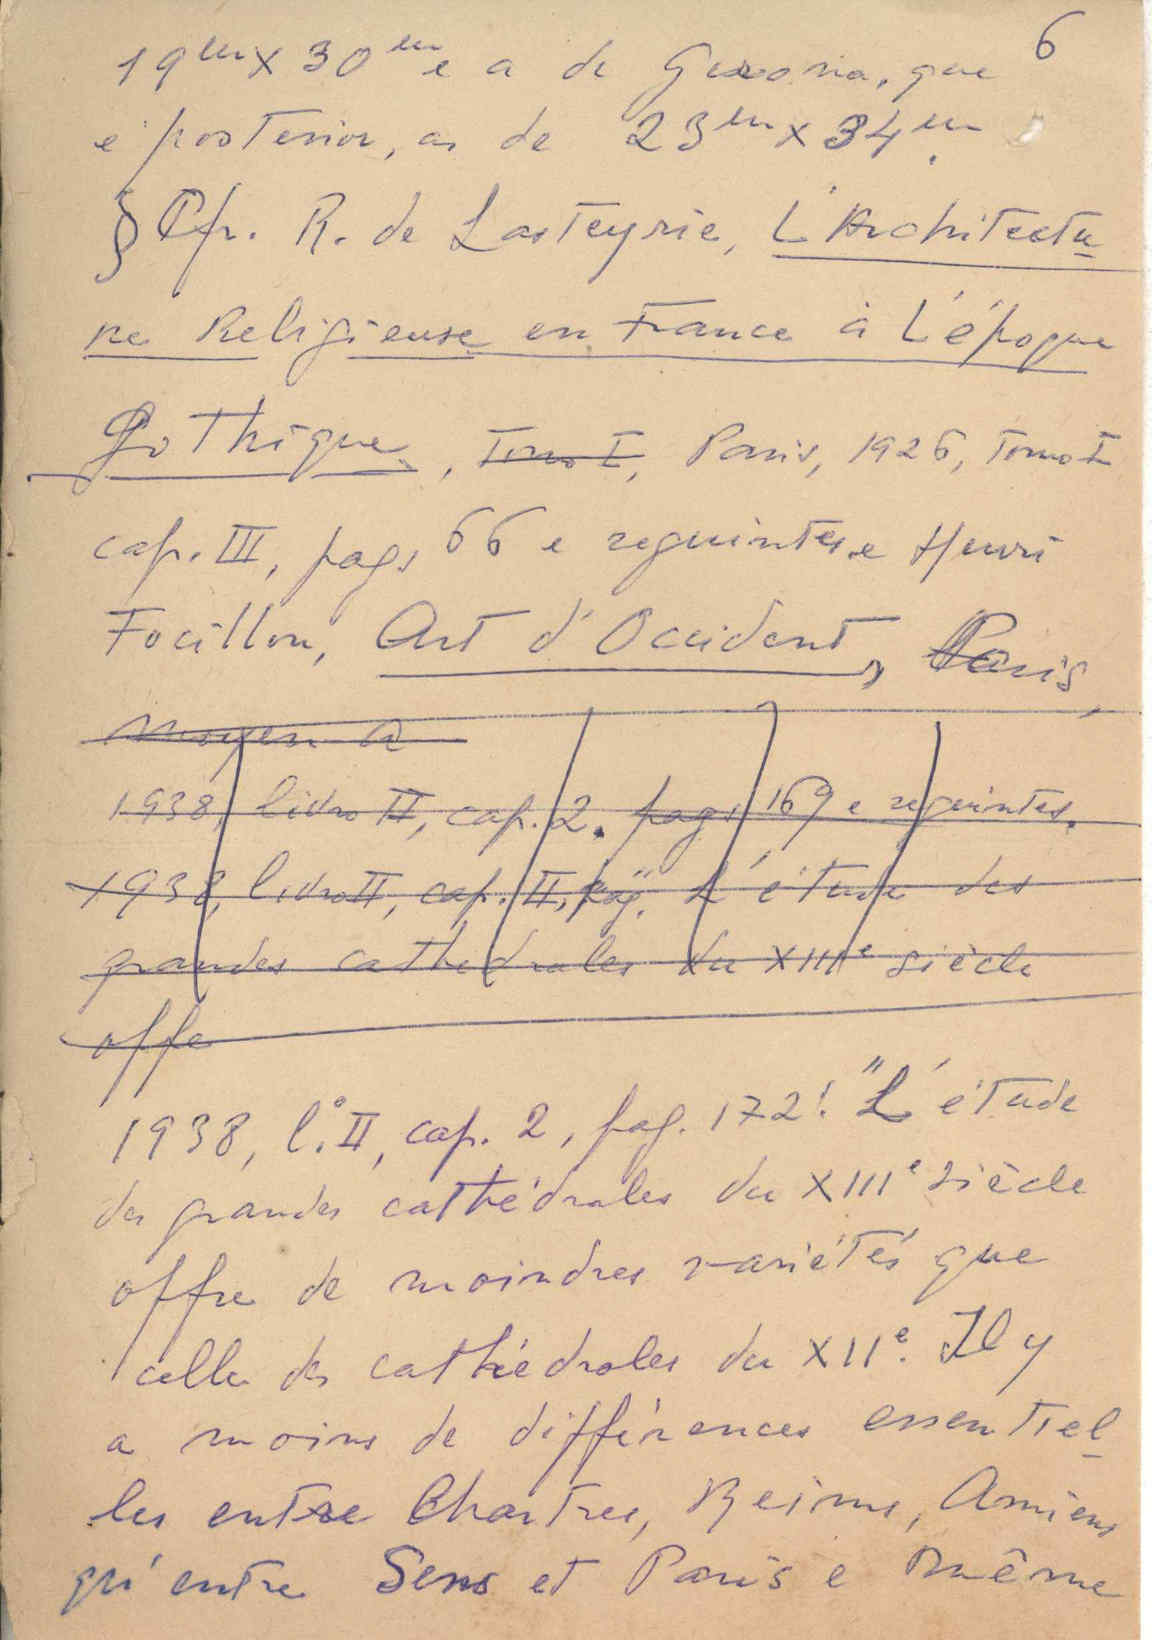 6
19m x 30m e a de Gerona, que
e' posterior, as de 23m x 34m.
§ Cfr. R. de Lasteyrie, L'Architectu-
re Religieuse en France à L'époque
Gothique, Tomo I, Paris, 1926, Tomo I
cap. III, pags 66 e seguintes e Henri
Focillon, Art d'Occident, Paris,
Moyen A
1938, livro II, cap. 2. pags 169 e seguintes.
1938, livro II, cap. II, pag. "L'étude des
grandes cathedrales du XIIIe siècle
offe
1938, l.º II, cap. 2, pag. 172: "L'étude
des grandes cathédrales du XIIIe siècle
offre de moindres variétés que
celle des cathédrales du XIIe. Il y
a moins de différences essentiel-
les entre Chartres, Reims, Amiens
qu'entre Sens et Paris e même